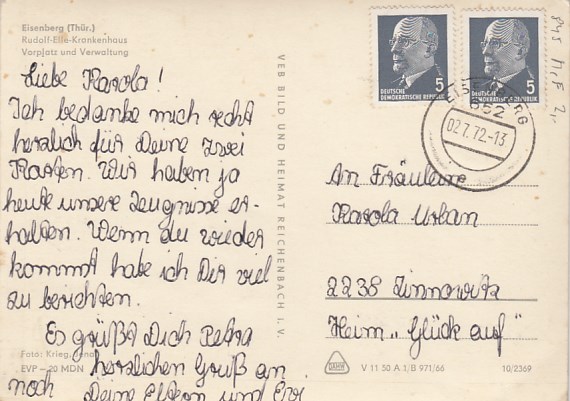 Eisenberg (Thür.)
Rudolf-Elle-Krankenhaus
Vorplatz und Verwaltung
Liebe Karola!
Ich bedanke mich recht
herzlich für Deine zwei
Karten. Wir haben ja
heute unsere Zeugnisse er-
halten. Wenn du wieder
kommst habe ich Dir viel
zu berichten.
Es grüßt Dich Petra
herzlichen Gruß an
noch Deine Eltern und
Foto: Krieg,
EVP -20 MDN
VEB BILD UND HEIMAT REICHENBACH I. V.
5
DEUTSCHE
DEMOKRATISCHE REPUBLIK
5
DEUTSCHE
DEMOKRATISCHE REPUBLIK
EISENBERG
652
02.7.72-13
An Fräulein
Karola Urban
2238 Zinnowitz
Heim „Glück auf"
V 11 50 A 1/B 971/66
10/2369